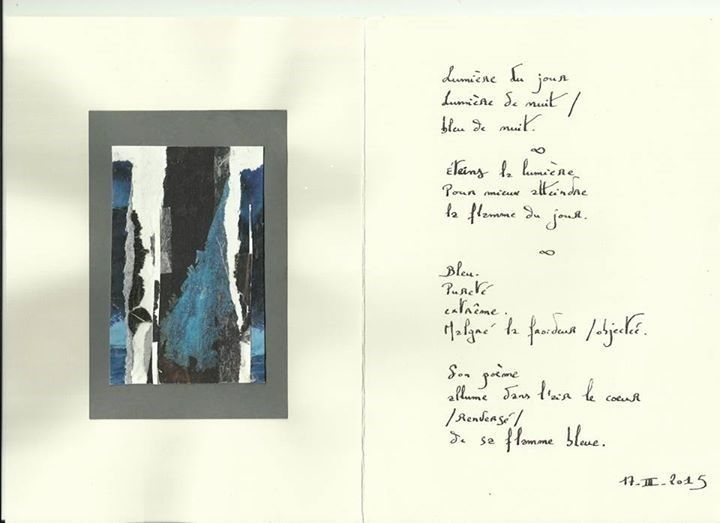 Lumière du jour
Lumière de nuit /
bleu de nuit.
∞
Éteins la lumière
Pour mieux atteindre
la flamme du jour.
∞
Bleu.
Pureté
extrême.
Malgré la froideur /objectée.
Son poème
allume dans l'air le coeur
/renversé/
de sa flamme bleue.
17-III-2015